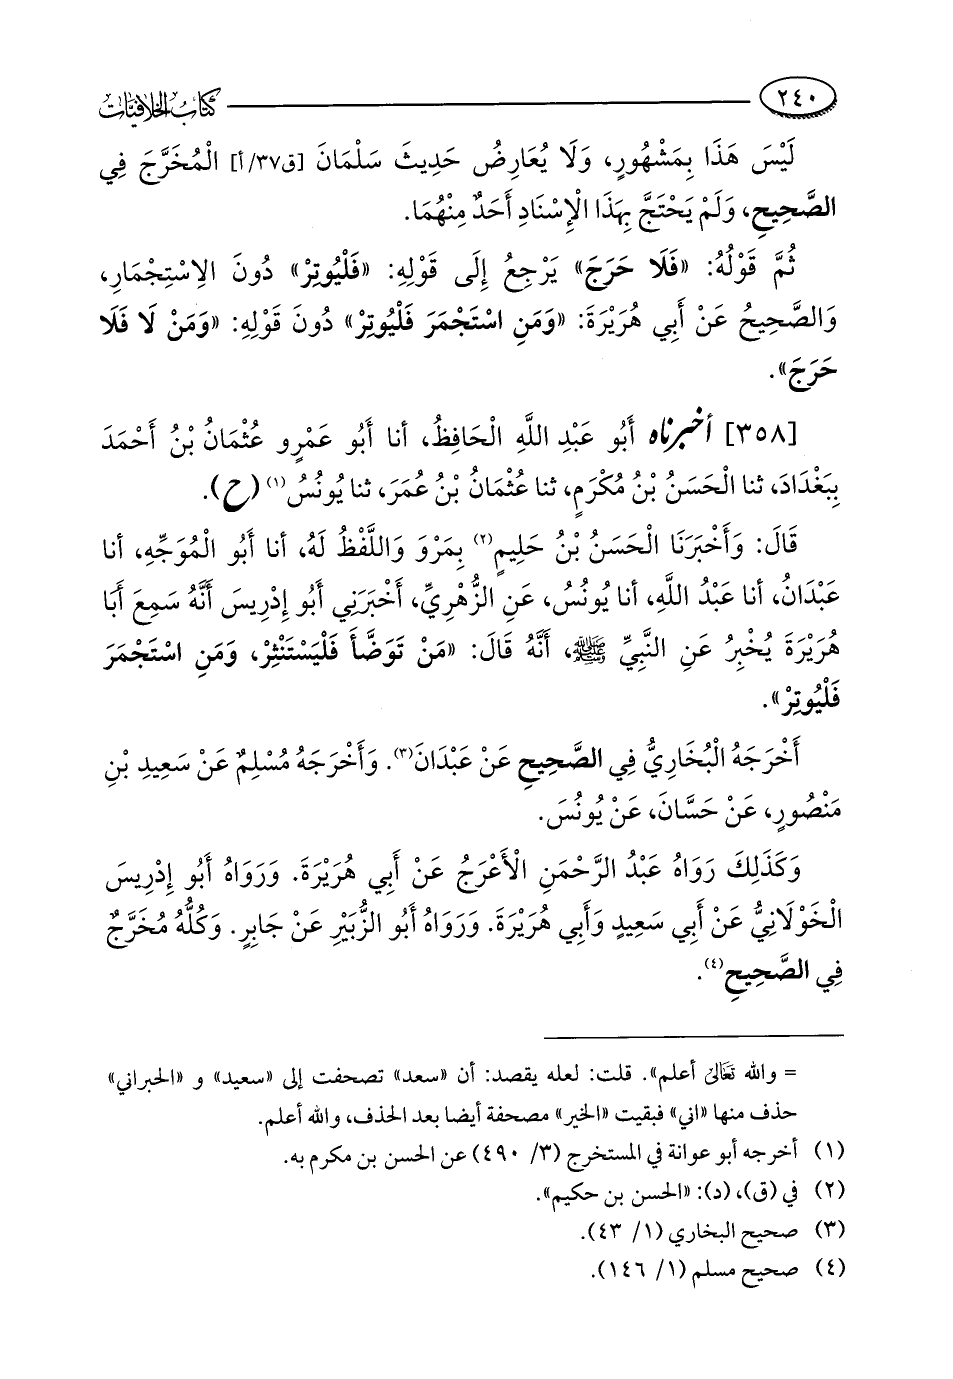 ٢٤٠ كتاب الخلافيات
لَيْسَ هَذَا بِمَشْهُورٍ، وَلَا يُعَارِضُ حَدِيثَ سَلْمَانَ [ق٣٧/أ] الْمُخَرَّجَ فِي
الصَّحِيحِ، وَلَمْ يَحْتَجَّ بِهَذَا الْإِسْنَادِ أَحَدٌ مِنْهُمَا.
ثُمَّ قَوْلُهُ: «فَلَا حَرَجَ» يَرْجِعُ إِلَى قَوْلِهِ: «فَلْيُوتِرْ» دُونَ الِاسْتِجْمَارِ،
وَالصَّحِيحُ عَنْ أَبِي هُرَيْرَةَ: «وَمَنِ اسْتَجْمَرَ فَلْيُوتِرْ» دُونَ قَوْلِهِ: «وَمَنْ لَا فَلَا
حَرَجَ».
[٣٥٨] أخبرناه أَبُو عَبْدِ اللَّهِ الْحَافِظُ، أنا أَبُو عَمْرٍو عُثْمَانُ بْنُ أَحْمَدَ
بِبَغْدَادَ، ثنا الْحَسَنُ بْنُ مُكْرَمٍ، ثنا عُثْمَانُ بْنُ عُمَرَ، ثنا يُونُسُ(١) (ح).
قَالَ: وَأَخْبَرَنَا الْحَسَنُ بْنُ حَلِيمٍ(٢) بِمَرْوَ وَاللَّفْظُ لَهُ، أنا أَبُو الْمُوَجِّهِ، أنا
عَبْدَانُ، أنا عَبْدُ اللَّهِ، أنا يُونُسُ، عَنِ الزُّهْرِيِّ، أَخْبَرَنِي أَبُو إِدْرِيسَ أَنَّهُ سَمِعَ أَبَا
هُرَيْرَةَ يُخْبِرُ عَنِ النَّبِيِّ ﷺ، أَنَّهُ قَالَ: «مَنْ تَوَضَّأَ فَلْيَسْتَنْثِرْ، وَمَنِ اسْتَجْمَرَ
فَلْيُوتِرْ».
أَخْرَجَهُ الْبُخَارِيُّ فِي الصَّحِيحِ عَنْ عَبْدَانَ(٣). وَأَخْرَجَهُ مُسْلِمٌ عَنْ سَعِيدِ بْنِ
مَنْصُورٍ، عَنْ حَسَّانَ، عَنْ يُونُسَ.
وَكَذَلِكَ رَوَاهُ عَبْدُ الرَّحْمَنِ الْأَعْرَجُ عَنْ أَبِي هُرَيْرَةَ. وَرَوَاهُ أَبُو إِدْرِيسَ
الْخَوْلَانِيُّ عَنْ أَبِي سَعِيدٍ وَأَبِي هُرَيْرَةَ. وَرَوَاهُ أَبُو الزُّبَيْرِ عَنْ جَابِرٍ. وَكُلُّهُ مُخَرَّجٌ
فِي الصَّحِيحِ(٤).
= والله تعالى أعلم». قلت: لعله يقصد: أن «سعد» تصحفت إلى «سعيد» و «الحبراني»
حذف منها «اني» فبقيت «الخير» مصحفة أيضا بعد الحذف، والله أعلم.
(١) أخرجه أبو عوانة في المستخرج (٣/ ٤٩٠) عن الحسن بن مكرم به.
(٢) في (ق)، (د): «الحسن بن حكيم».
(٣) صحيح البخاري (١/ ٤٣).
(٤) صحيح مسلم (١/ ١٤٦).